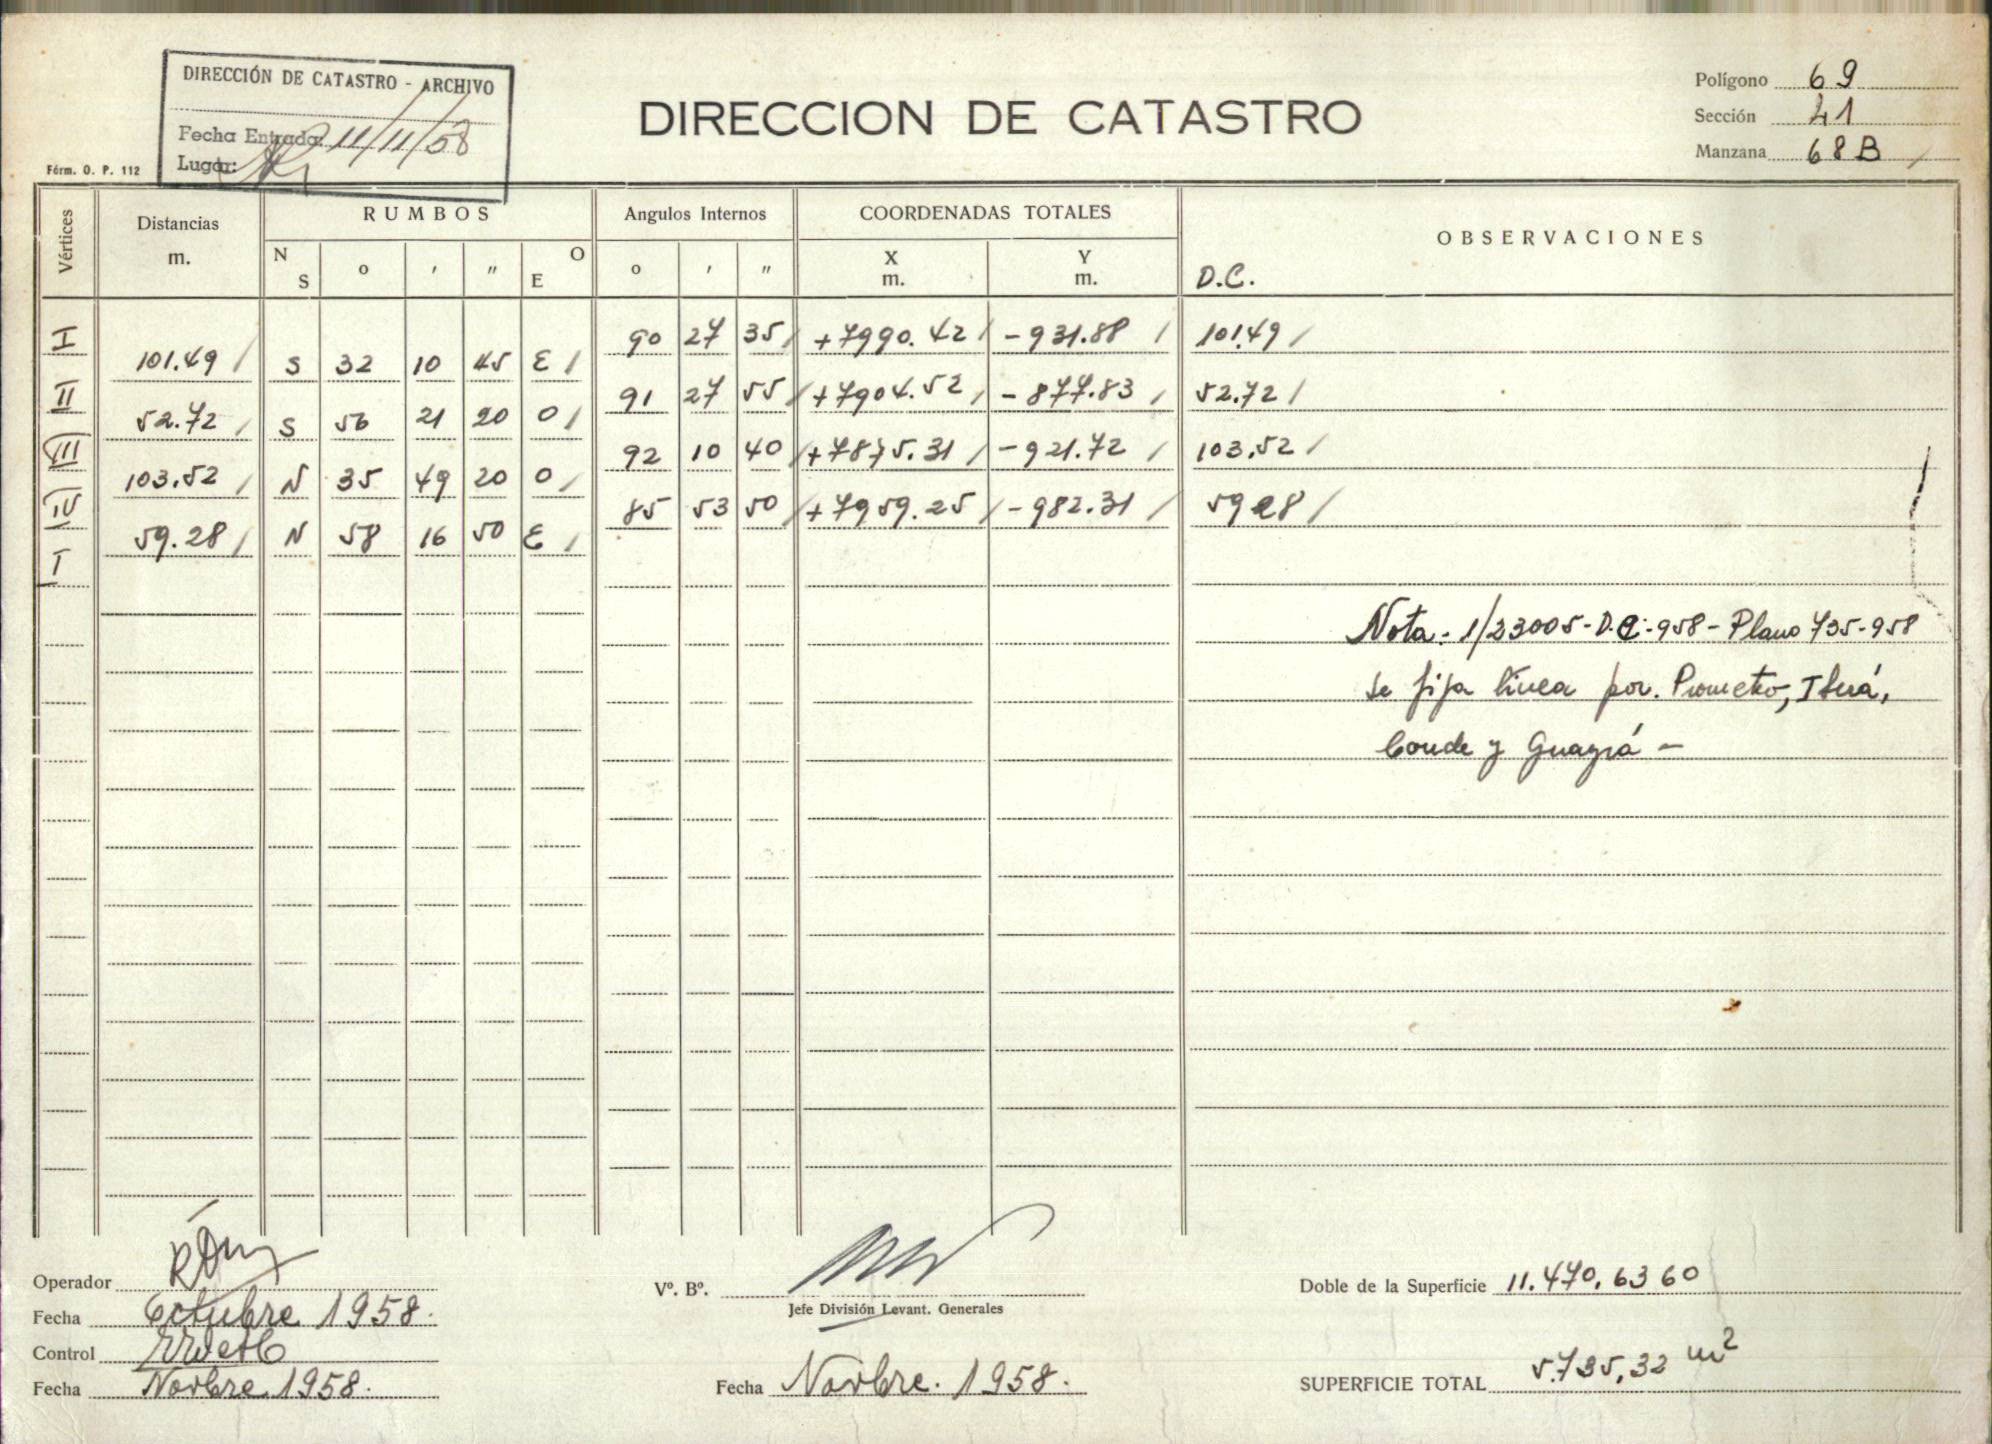 DIRECCIÓN DE CATASTRO - ARCHIVO
Fecha Entrada: 11/11/58
Lugar:
Fórm. O. P. 112
DIRECCION DE CATASTRO
Polígono 69
Sección 41
Manzana 68B
Vértices
Distancias
m.
RUMBOS
N
S
o
,
"
O
E
Angulos Internos
o
,
"
COORDENADAS TOTALES
X
m.
Y
m.
OBSERVACIONES
D.C.
I 90 27 35 +7990.42 -931.88 101.49
101.49 S 32 10 45 E
II 91 27 55 +7904.52 -877.83 52.72
52.72 S 56 21 20 O
III 92 10 40 +7875.31 -921.72 103.52
103.52 N 35 49 20 O
IV 85 53 50 +7959.25 -982.31 59.28
59.28 N 58 16 50 E
I
Nota.- 1/23005-D.C.-958- Plano 735-958
se fija línea por. Prometeo,
Conde y Guayrá -
Operador
Fecha Octubre 1958.
Control
Fecha Novbre. 1958.
Vº. Bº.
Jefe División Levant. Generales
Fecha Novbre. 1958.
Doble de la Superficie 11.470.6360
SUPERFICIE TOTAL 5.735,32 m2